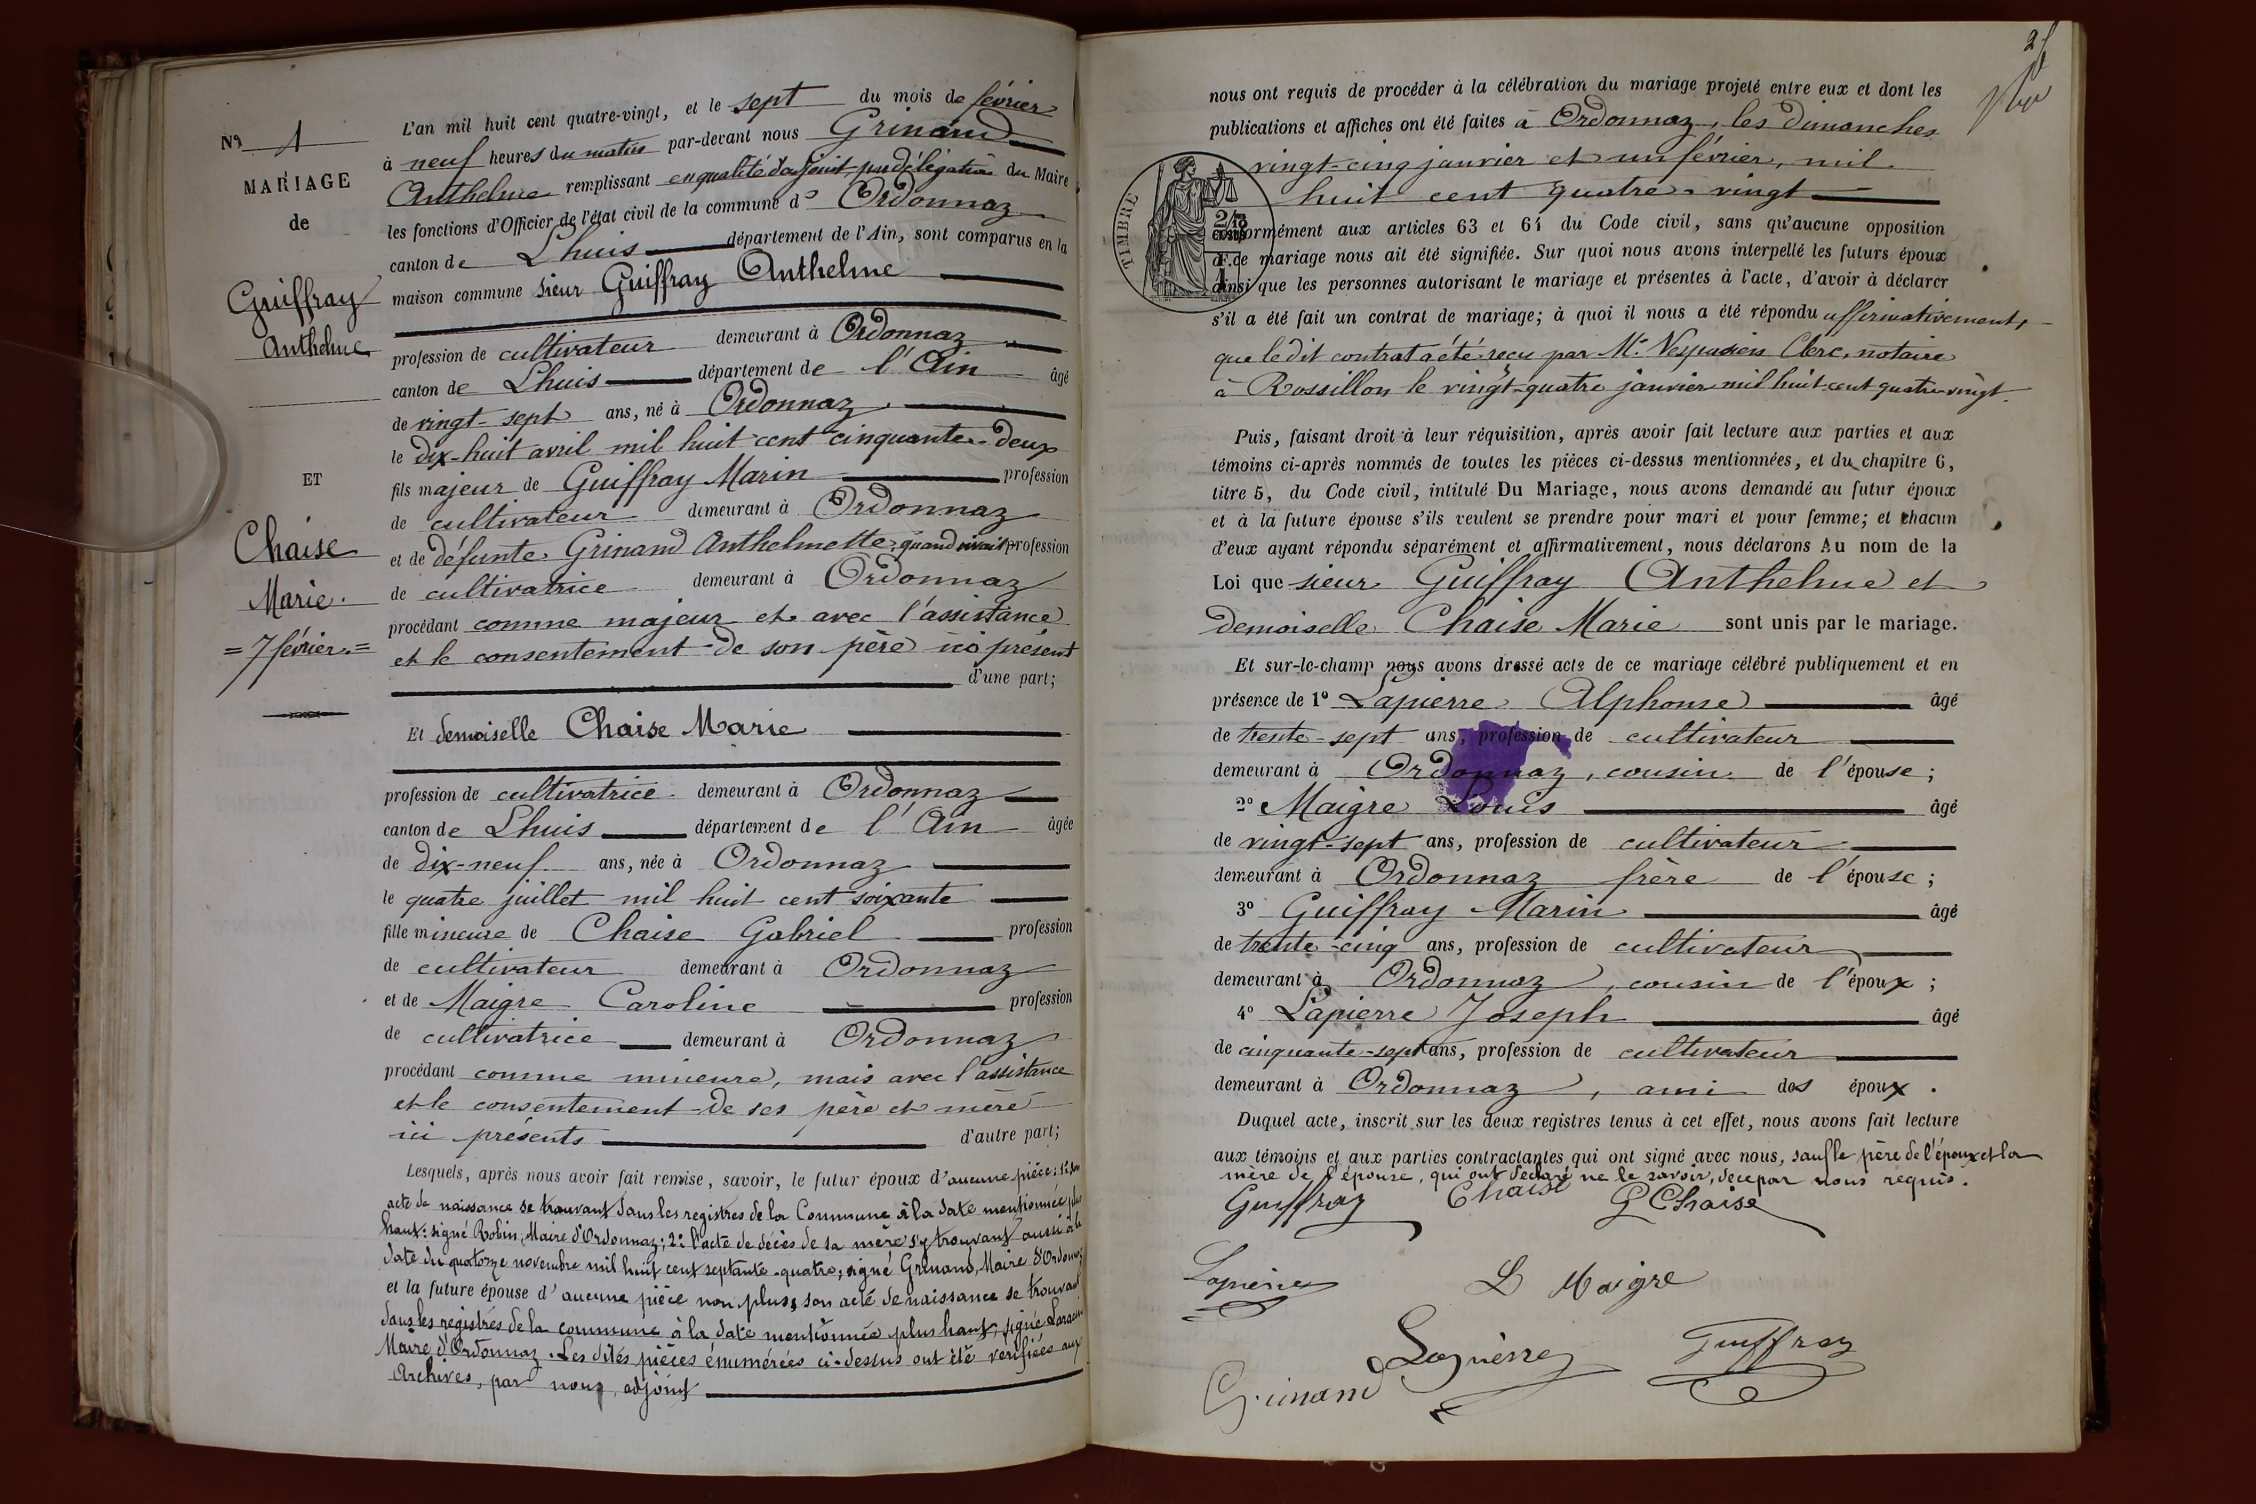 Nº 1
MARIAGE
de
Guiffray
Anthelme
ET
Chaise
Marie.
= 7 février. =
L'an mil huit cent quatre-vingt, et le sept du mois de février
à neuf heures du matin par-devant nous Grinand
Anthelme remplissant en qualité d'adjoint, par délégation du Maire
les fonctions d'Officier de l'état civil de la commune d' Ordonnaz
canton de Lhuis département de l'Ain, sont comparus en la
maison commune sieur Guiffray Anthelme
profession de cultivateur demeurant à Ordonnaz
canton de Lhuis département de l'Ain âgé
de vingt-sept ans, né à Ordonnaz
le dix-huit avril mil huit cent cinquante-deux
fils majeur de Guiffray Marin profession
de cultivateur demeurant à Ordonnaz
et de défunte Grinand Anthelmette, quand vivait profession
de cultivatrice demeurant à Ordonnaz
procédant comme majeur et avec l'assistance
et le consentement de son père ici présent
d'une part;
Et demoiselle Chaise Marie
profession de cultivatrice demeurant à Ordonnaz
canton de Lhuis département de l'Ain âgée
de dix-neuf ans, née à Ordonnaz
le quatre juillet mil huit cent soixante
fille mineure de Chaise Gabriel profession
de cultivateur demeurant à Ordonnaz
et de Maigre Caroline profession
de cultivatrice demeurant à Ordonnaz
procédant comme mineure, mais avec l'assistance
et le consentement de ses père et mère
ici présents d'autre part;
Lesquels, après nous avoir fait remise, savoir, le futur époux d'aucune pièce: 1º son
acte de naissance se trouvant dans les registres de la Commune à la date mentionnée plus
haut: signé Robin, Maire d'Ordonnaz; 2º l'acte de décès de sa mère s'y trouvant aussi à la
date du quatorze novembre mil huit cent septante-quatre, signé Grinand, Maire d'Ordonnaz;
et la future épouse d'aucune pièce non plus, son acte de naissance se trouvant
dans les registres de la commune à la date mentionnée plus haut, signé
Maire d'Ordonnaz. Les dites pièces énumérées ci-dessus ont été vérifiées aux
Archives, par nous, adjoint
2
nous ont requis de procéder à la célébration du mariage projeté entre eux et dont les
publications et affiches ont été faites à Ordonnaz, les dimanches
vingt-cinq janvier et un février, mil
huit cent quatre-vingt
TIMBRE
conformément aux articles 63 et 64 du Code civil, sans qu'aucune opposition
à ce mariage nous ait été signifiée. Sur quoi nous avons interpellé les futurs époux
ainsi que les personnes autorisant le mariage et présentes à l'acte, d'avoir à déclarer
s'il a été fait un contrat de mariage; à quoi il nous a été répondu affirmativement,
que le dit contrat a été reçu par Mº Vespasien Clerc, notaire
à Rossillon le vingt-quatre janvier mil huit cent quatre-vingt.
Puis, faisant droit à leur réquisition, après avoir fait lecture aux parties et aux
témoins ci-après nommés de toutes les pièces ci-dessus mentionnées, et du chapitre 6,
titre 5, du Code civil, intitulé Du Mariage, nous avons demandé au futur époux
et à la future épouse s'ils veulent se prendre pour mari et pour femme; et chacun
d'eux ayant répondu séparément et affirmativement, nous déclarons Au nom de la
Loi que sieur Guiffray Anthelme et
demoiselle Chaise Marie sont unis par le mariage.
Et sur-le-champ nous avons dressé acte de ce mariage célébré publiquement et en
présence de 1º Lapierre Alphonse âgé
de trente-sept ans, profession de cultivateur
demeurant à Ordonnaz, cousin de l'épouse;
2º Maigre Louis âgé
de vingt-sept ans, profession de cultivateur
demeurant à Ordonnaz frère de l'épouse;
3º Guiffray Marin âgé
de trente-cinq ans, profession de cultivateur
demeurant à Ordonnaz, cousin de l'époux;
4º Lapierre Joseph âgé
de cinquante-sept ans, profession de cultivateur
demeurant à Ordonnaz, ami des époux.
Duquel acte, inscrit sur les deux registres tenus à cet effet, nous avons fait lecture
aux témoins et aux parties contractantes qui ont signé avec nous, sauf le père de l'époux et la
mère de l'épouse, qui ont déclaré ne le savoir, de ce par nous requis.
Guiffray Chaise G Chaise
Lapierre L Maigre
Grinand Lapierre Guiffray